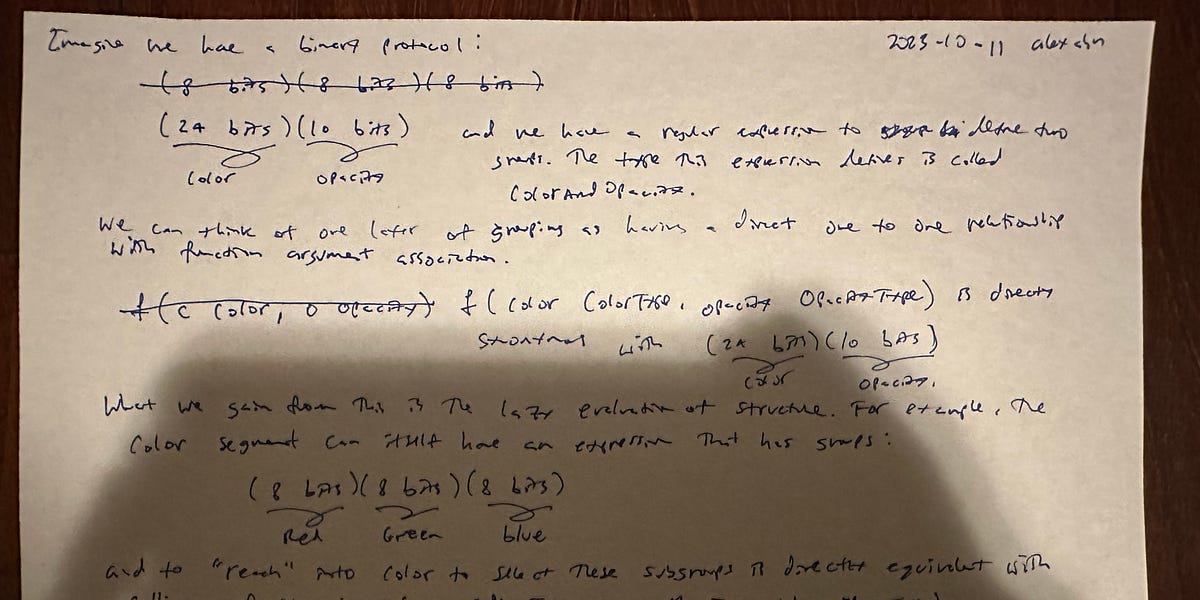 Imagine we have a binary protocol: 2023-10-11 alex ahn
(8 bits)(8 bits)(8 bits)
(24 bits)(10 bits) and we have a regular expression to define two
groups. The type this expression defines is called
Color Opacity
ColorAndOpacity.
We can think of one layer of grouping as having a direct one to one relationship
with function argument association.
f(c Color, o Opacity) f(color ColorType, opacity OpacityType) is directly
with (24 bits)(10 bits)
Color Opacity.
What we gain from this is the lazy evaluation of structure. For example, the
Color segment can itself have an expression that has groups:
(8 bits)(8 bits)(8 bits)
Red Green blue
and to "reach" into color to select these subgroups is directly equivalent with